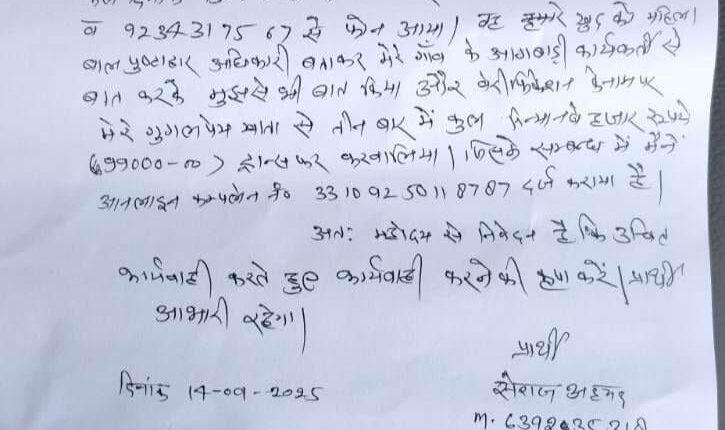 व 9234317567 से फोन आया। वह हमारे खुद को महिला
बाल पुष्टाहार अधिकारी बताकर मेरे गाँव के आगबाड़ी कार्यकर्ती से
बात करके मुझसे भी बात किया और वेरीफिकेशन के नाम पर
मेरे गुगल पेय खाता से तीन बार में कुल निन्यानवे हजार रूपये
(99000-00) ट्रान्सफर करवा लिया। जिसके सम्बन्ध में मैनें
आनलाइन कम्पलेन नं० 33109250118787 दर्ज कराया है।
अतः महोदय से निवेदन है कि उचित
कार्यवाही करते हुए कार्यवाही करने की कृपा करें। प्रार्थी
आभारी रहेगा।
प्रार्थी
दिनांक 14-09-2025
सेराज अहमद
M.